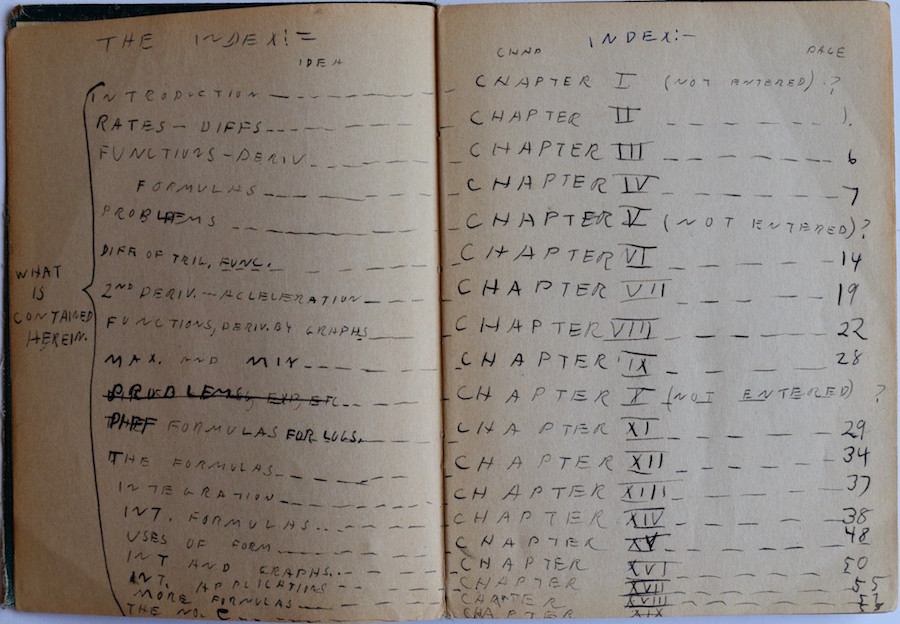 THE INDEX:=
IDEA
INTRODUCTION
RATES – DIFFS
FUNCTIONS – DERIV.
FORMULAS
PROBLEMS
DIFF OF TRIG. FUNC.
2ND DERIV. – ACCLERATION
FUNCTIONS, DERIV. BY GRAPHS
MAX. AND MIN
PROBLEMS
FORMULAS FOR LOGS.
THE FORMULAS
INTEGRATION
INT. FORMULAS
USES OF FORM
INT AND GRAPHS
INT. APPLICATIONS
MORE FORMULAS
THE NO. e
WHAT
IS
CONTAINED
HEREIN.
INDEX:-
CHAP PAGE
CHAPTER I (NOT ENTERED) ?
CHAPTER II 1.
CHAPTER III 6
CHAPTER IV 7
CHAPTER V (NOT ENTERED) ?
CHAPTER VI 14
CHAPTER VII 19
CHAPTER VIII 22
CHAPTER IX 28
CHAPTER X (NOT ENTERED) ?
CHAPTER XI 29
CHAPTER XII 34
CHAPTER XIII 37
CHAPTER XIV 38
CHAPTER XV 48
CHAPTER XVI 50
CHAPTER XVII 55
CHAPTER XVIII
CHAPTER XIX